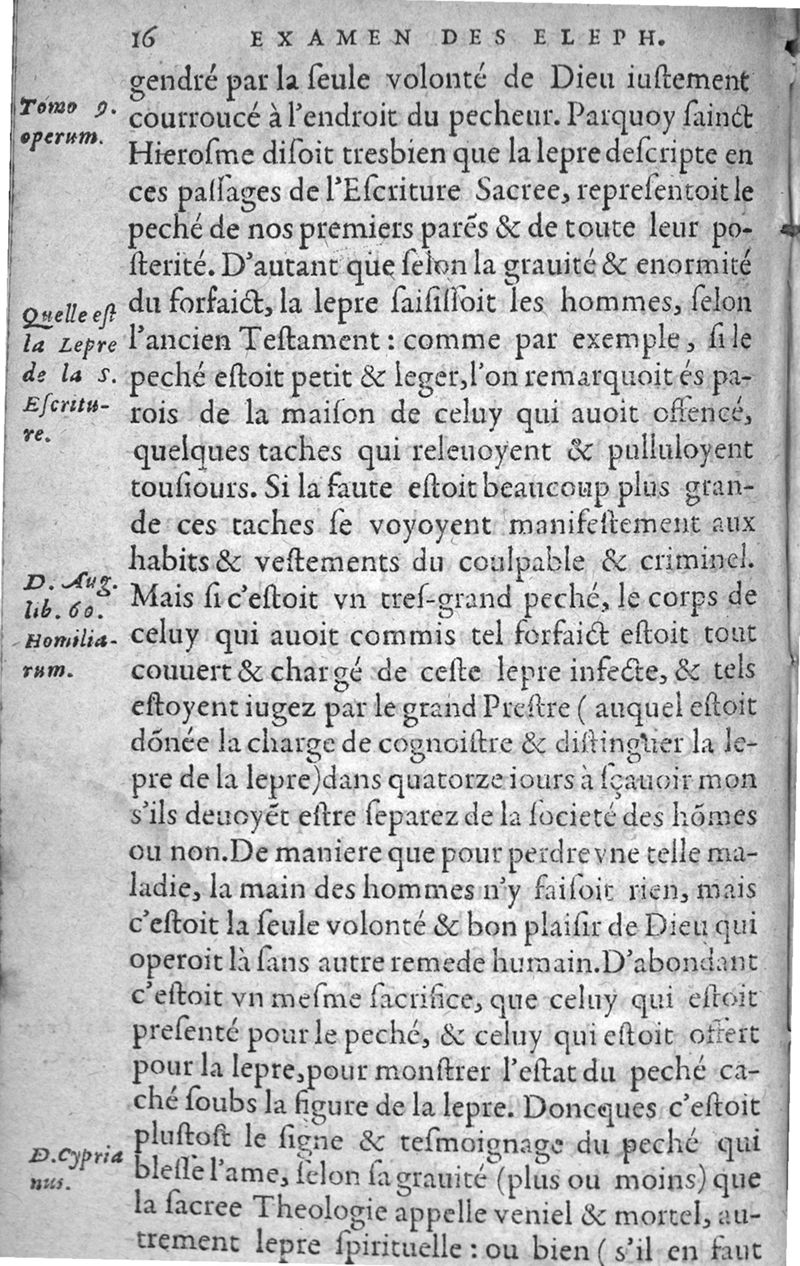 16 EXAMEN DES ELEPH.
gendré par la ſeule volonté de Dieu iuſtement
Tomo 9.
operum.
courroucé à l'endroit du pecheur. Parquoy ſainct
Hieroſme diſoit tresbien que la lepre deſcripte en
ces paſſages de l'Eſcriture Sacree, repreſentoit le
peché de nos premiers parẽs & de toute leur po-
ſterité. D'autant que ſelon la grauité & enormité
Quelle eſt
la Lepre
de la S.
Eſcritu-
re.
du forfaict, la lepre ſaiſiſſoit les hommes, ſelon
l'ancien Teſtament : comme par exemple, ſi le
peché eſtoit petit & leger, l'on remarquoit és pa-
rois de la maiſon de celuy qui auoit offencé,
quelques taches qui releuoyent & pulluloyent
touſiours. Si la faute eſtoit beaucoup plus gran-
de ces taches ſe voyoyent manifeſtement aux
habits & veſtements du coulpable & criminel.
D. Aug.
lib. 60.
Homilia-
rum.
Mais ſi c'eſtoit vn treſ-grand peché, le corps de
celuy qui auoit commis tel forfaict eſtoit tout
couuert & chargé de ceſte lepre infecte, & tels
eſtoyent iugez par le grand Preſtre ( auquel eſtoit
dõnée la charge de cognoiſtre & diſtinguer la le-
pre de la lepre)dans quatorze iours à ſçauoir mon
s'ils deuoyẽt eſtre ſeparez de la ſocieté des hõmes
ou non.De maniere que pour perdre vne telle ma-
ladie, la main des hommes n'y faiſoit rien, mais
c'eſtoit la ſeule volonté & bon plaiſir de Dieu qui
operoit là ſans autre remede humain.D'abondant
c'eſtoit vn meſme ſacrifice, que celuy qui eſtoit
preſenté pour le peché, & celuy qui eſtoit offert
pour la lepre,pour monſtrer l'eſtat du peché ca-
ché ſoubs la figure de la lepre. Doncques c'eſtoit
D.Cypria
nus.
pluſtoſt le ſigne & teſmoignage du peché qui
bleſſe l'ame, ſelon ſa grauité (plus ou moins) que
la ſacree Theologie appelle veniel & mortel, au-
trement lepre ſpirituelle : ou bien ( s'il en faut